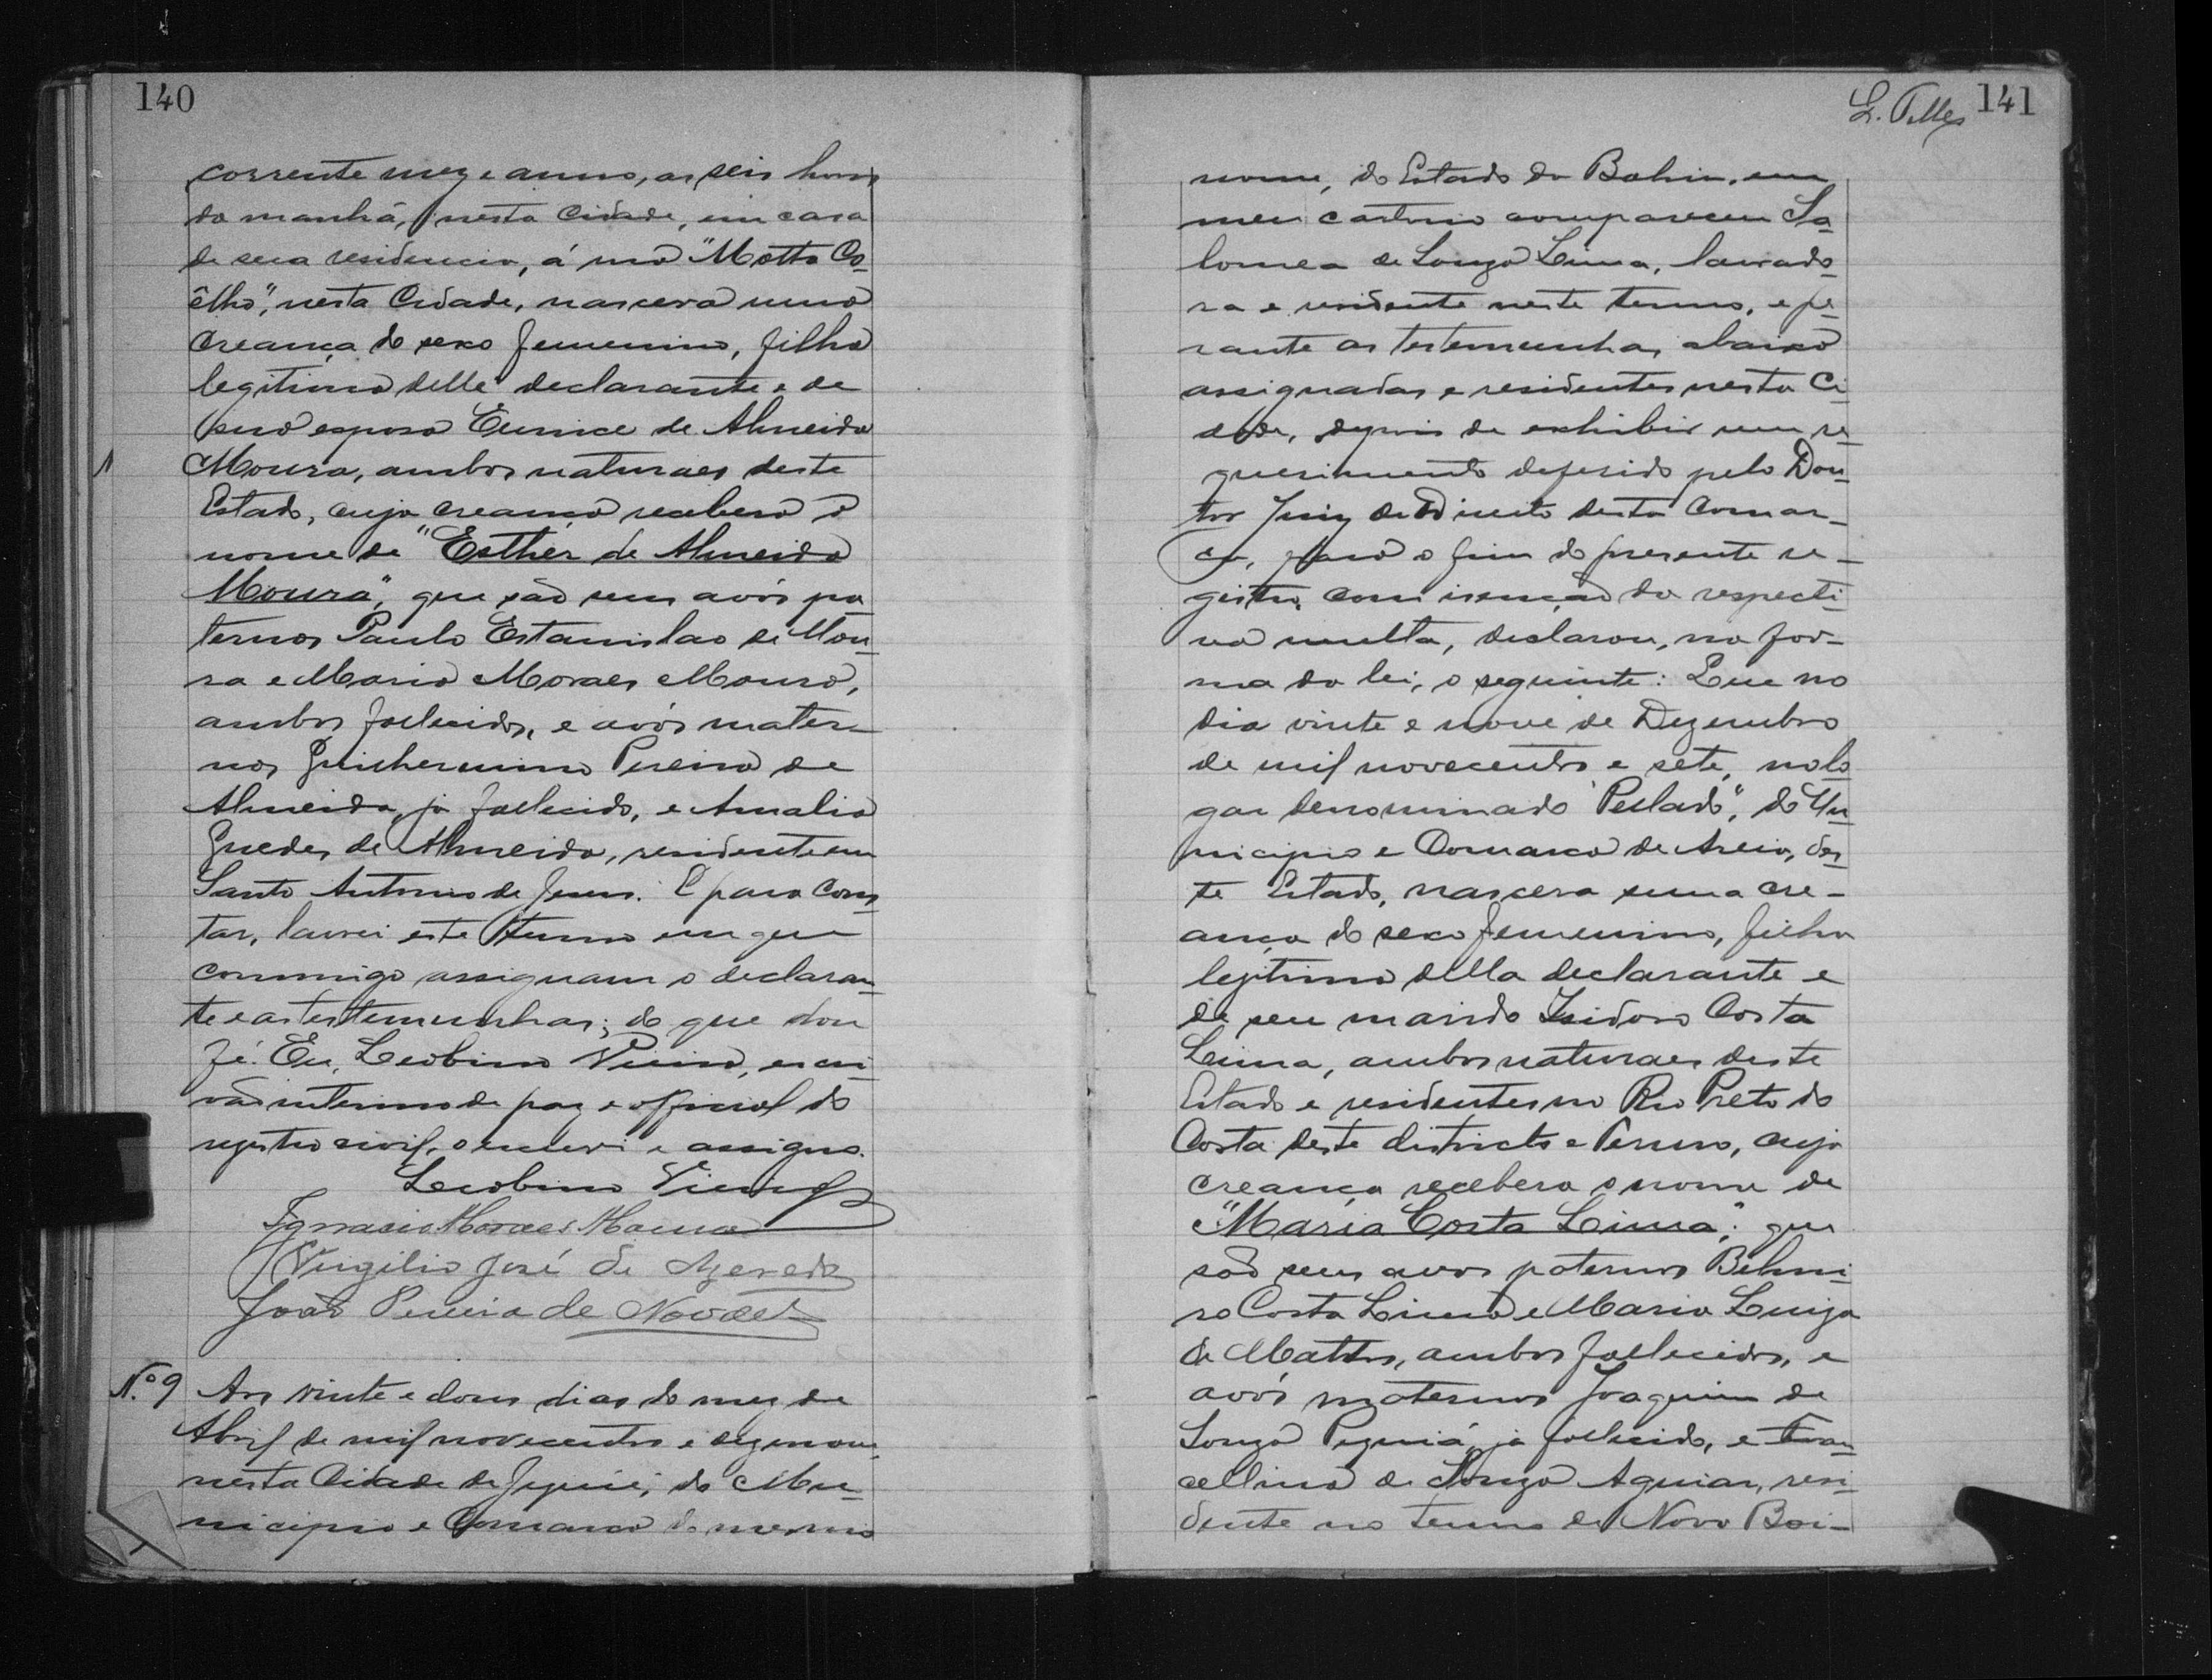 140
corrente mez e anno, as seis horas
da manhã, nesta Cidade, em casa
de sua residencia, á rua "Motta Co-
êlho", nesta Cidade, nascera uma
creança do sexo femenino, filha
legitima delle declarante e de
sua esposa Eunice de Almeida
Moura, ambos naturaes deste
Estado, cuja creança recebera o
nome de "Esther de Almeida
Moura", que são seus avós pa-
ternos Paulo Estanislao de Mou-
ra e Maria Moraes Moura,
ambos fallecidos, e avós mater-
nos Guilhermino Pereira de
Almeida, já fallecido, e Amalia
Guedes de Almeida, residente em
Santo Antonio de Jesus. E para cons-
tar, lavrei este termo em que
commigo assignam o declaran-
te e as testemunhas; do que dou
fé. Eu, Leobino, escri-
vão interino de paz e official do
registro civil, o escrevi e assigno.
Leobino
Ignacio Moraes Moura
Virgilio José de Azevedo
João Pereira de Novaes
N.º 9 Aos vinte e dous dias do mez de
Abril de mil novecentos e dezenove
nesta Cidade de Jequié, do Mu-
nicipio e Comarca do mesmo
L. Telles 141
nome, do Estado da Bahia, em
meu cartorio compareceu Sa-
lomea de Souza Lima, lavrado-
ra e residente neste termo, e pe-
rante as testemunhas abaixo
assignadas e residentes nesta Ci-
dade, depois de exhibir um re-
querimento deferido pelo Dou-
tor Juiz de Direito desta Comar-
ca, para o fim do presente re-
gistro, com isenção da respecti-
va multa, declarou, na for-
ma da lei, o seguinte: Que no
dia vinte e nove de Dezembro
de mil novecentos e sete, no lo-
gar denominado "Pellado", do Mu-
nicipio e Comarca de Areia, des-
te Estado, nascera uma cre-
ança do sexo femenino, filha
legitima della declarante e
de seu marido Isidoro Costa
Lima, ambos naturaes deste
Estado e residentes no Rio Preto do
Costa deste districto e Termo, cuja
creança recebera o nome de
"Maria Costa Lima"; que
são seus avos paternos Belmi-
ro Costa Lima e Maria Luiza
de Mattos, ambos fallecidos, e
avós maternos Joaquim de
Souza, já fallecido, e Fran-
cellina de Souza Aguiar, resi-
dente no termo de Nova Boi-